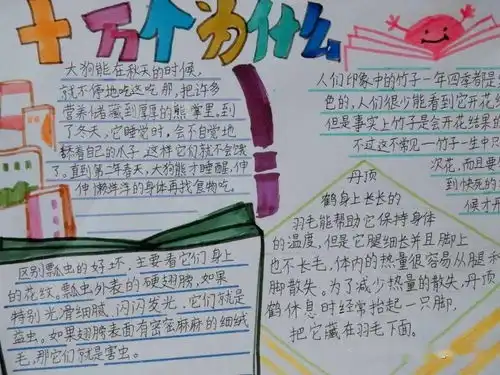 十万个为什么
大狗能在秋天的时候，
就不停地吃这吃那，把许多
营养储藏到厚厚的熊掌里。到
了冬天，它睡觉时，会不自觉地
舔着自己的爪子，这样它们就不会饿
了。直到第二年春天，大狗能才睡醒，伸
伸懒洋洋的身体再找食物吃。
人们印象中的竹子一年四季都是
色的，人们很少能看到它开花
但是事实上竹子是会开花结果的
不过这不常见一竹子一生中只
次花，而且要
到快死的
候才开
丹顶
鹤身上长长的
羽毛能帮助它保持身体
的温度，但是它腿细长并且脚上
也不长毛，体内的热量很容易从腿和
脚散失。为了减少热量的散失，丹顶
鹤休息时经常抬起一只脚，
把它藏在羽毛下面。
区别瓢虫的好坏，主要看它们身上
的花纹。瓢虫外表的硬翅膀，如果
特别光滑细腻，闪闪发光，它们就是
益虫。如果翅膀表面有密密麻麻的细绒
毛，那它们就是害虫。